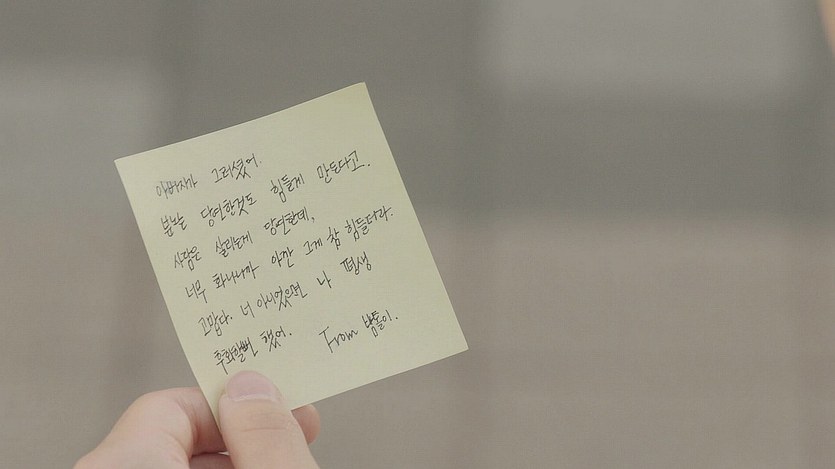 아버지가 그러셨어.
분노는 당연한것도 힘들게 만든다고.
사람은 살리는게 당연한데,
너무 화나니까 아깐 그게 참 힘들더라.
고맙다. 너 아니었으면 나 평생
후회할뻔 했어. From 밤톨이.